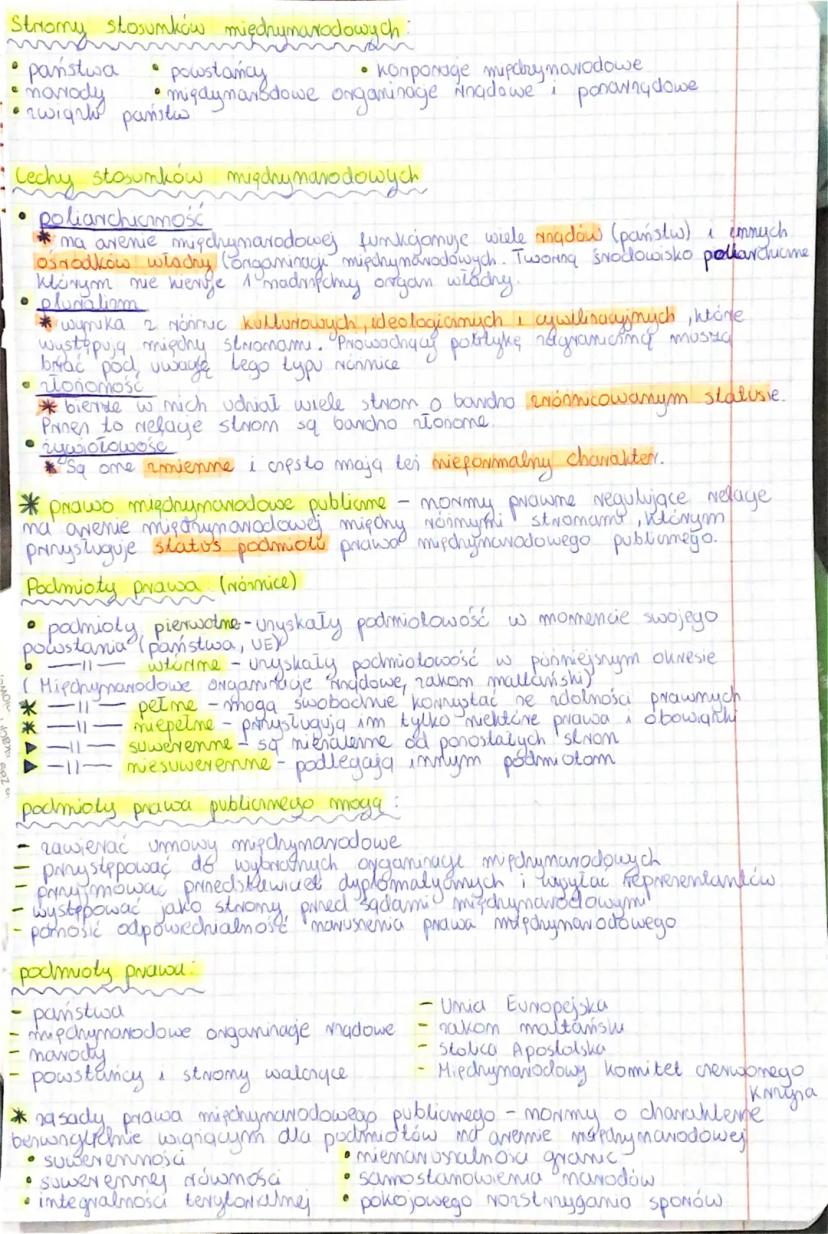 Strony stosunków międzynarodowych:
• państwa • powstańcy • korporacje międzynarodowe
• narody • międzynarodowe organizacje rządowe i pozarządowe
• związki państw
Cechy stosunków międzynarodowych
• poliarchiczność
* na arenie międzynarodowej funkcjonuje wiele rządów (państw) i innych
ośrodków władzy (organizacji międzynarodowych. Tworzą środowisko poliarchiczne
którym nie kieruje 1 nadrzędny organ władzy.
• pluralizm
* wynika z różnic kulturowych, ideologicznych i cywilizacyjnych, które
występują między stronami. Prowadzący politykę zagraniczną muszą
brać pod uwagę tego typu różnice
• złożoność
* bierze w nich udział wiele stron o bardzo zróżnicowanym statusie.
Przez to relacje stron są bardzo złożone.
• żywiołowość
* Są one zmienne i często mają też nieformalny charakter.
* prawo międzynarodowe publiczne – normy prawne regulujące relacje
na arenie międzynarodowej między różnymi stronami, którym
przysługuje status podmiotu prawa międzynarodowego publicznego.
Podmioty prawa (różnice)
• podmioty pierwotne - uzyskały podmiotowość w momencie swojego
powstania (państwa, UE)
• —11— wtórne – uzyskały podmiotowość w późniejszym okresie
(Międzynarodowe organizacje rządowe, zakon maltański)
* —11— pełne – mogą swobodnie korzystać ze zdolności prawnych
* —11— niepełne – przysługują im tylko niektóre prawa i obowiązki
▶ —11— suwerenne – są niezależne od pozostałych stron
▶ —11— niesuwerenne - podlegają innym podmiotom
podmioty prawa publicznego mogą:
– zawierać umowy międzynarodowe
– przystępować do wybranych organizacji międzynarodowych
– przyjmować przedstawicieli dyplomatycznych i wysyłać reprezentantów
– występować jako strony przed sądami międzynarodowymi
– ponosić odpowiedzialność naruszenia prawa międzynarodowego
podmioty prawa:
– państwa
– międzynarodowe organizacje rządowe
– narody
– powstańcy i strony walczące
– Unia Europejska
– zakon maltański
– Stolica Apostolska
– Międzynarodowy komitet czerwonego
krzyża
* zasady prawa międzynarodowego publicznego – normy o charakterze
bezwzględnie wiążącym dla podmiotów na arenie międzynarodowej
• suwerenności • nienaruszalności granic
• suwerennej równości • samostanowienia narodów
• integralności terytorialnej • pokojowego rozstrzygania sporów